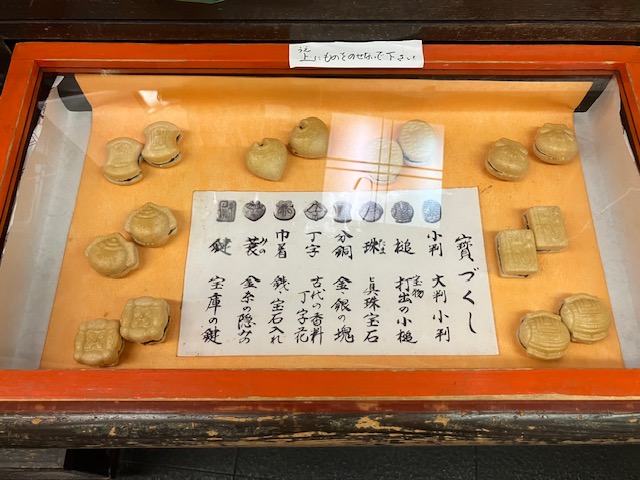 上にものをのせないで下さい
寳づくし
小判 大判 小判
槌 宝物 打出の小槌
珠 眞珠宝石
分銅 金、銀の塊
丁字 古代の香料 丁字花
巾着 銭、宝石入れ
みの 金糸の隠みの
鍵 宝庫の鍵